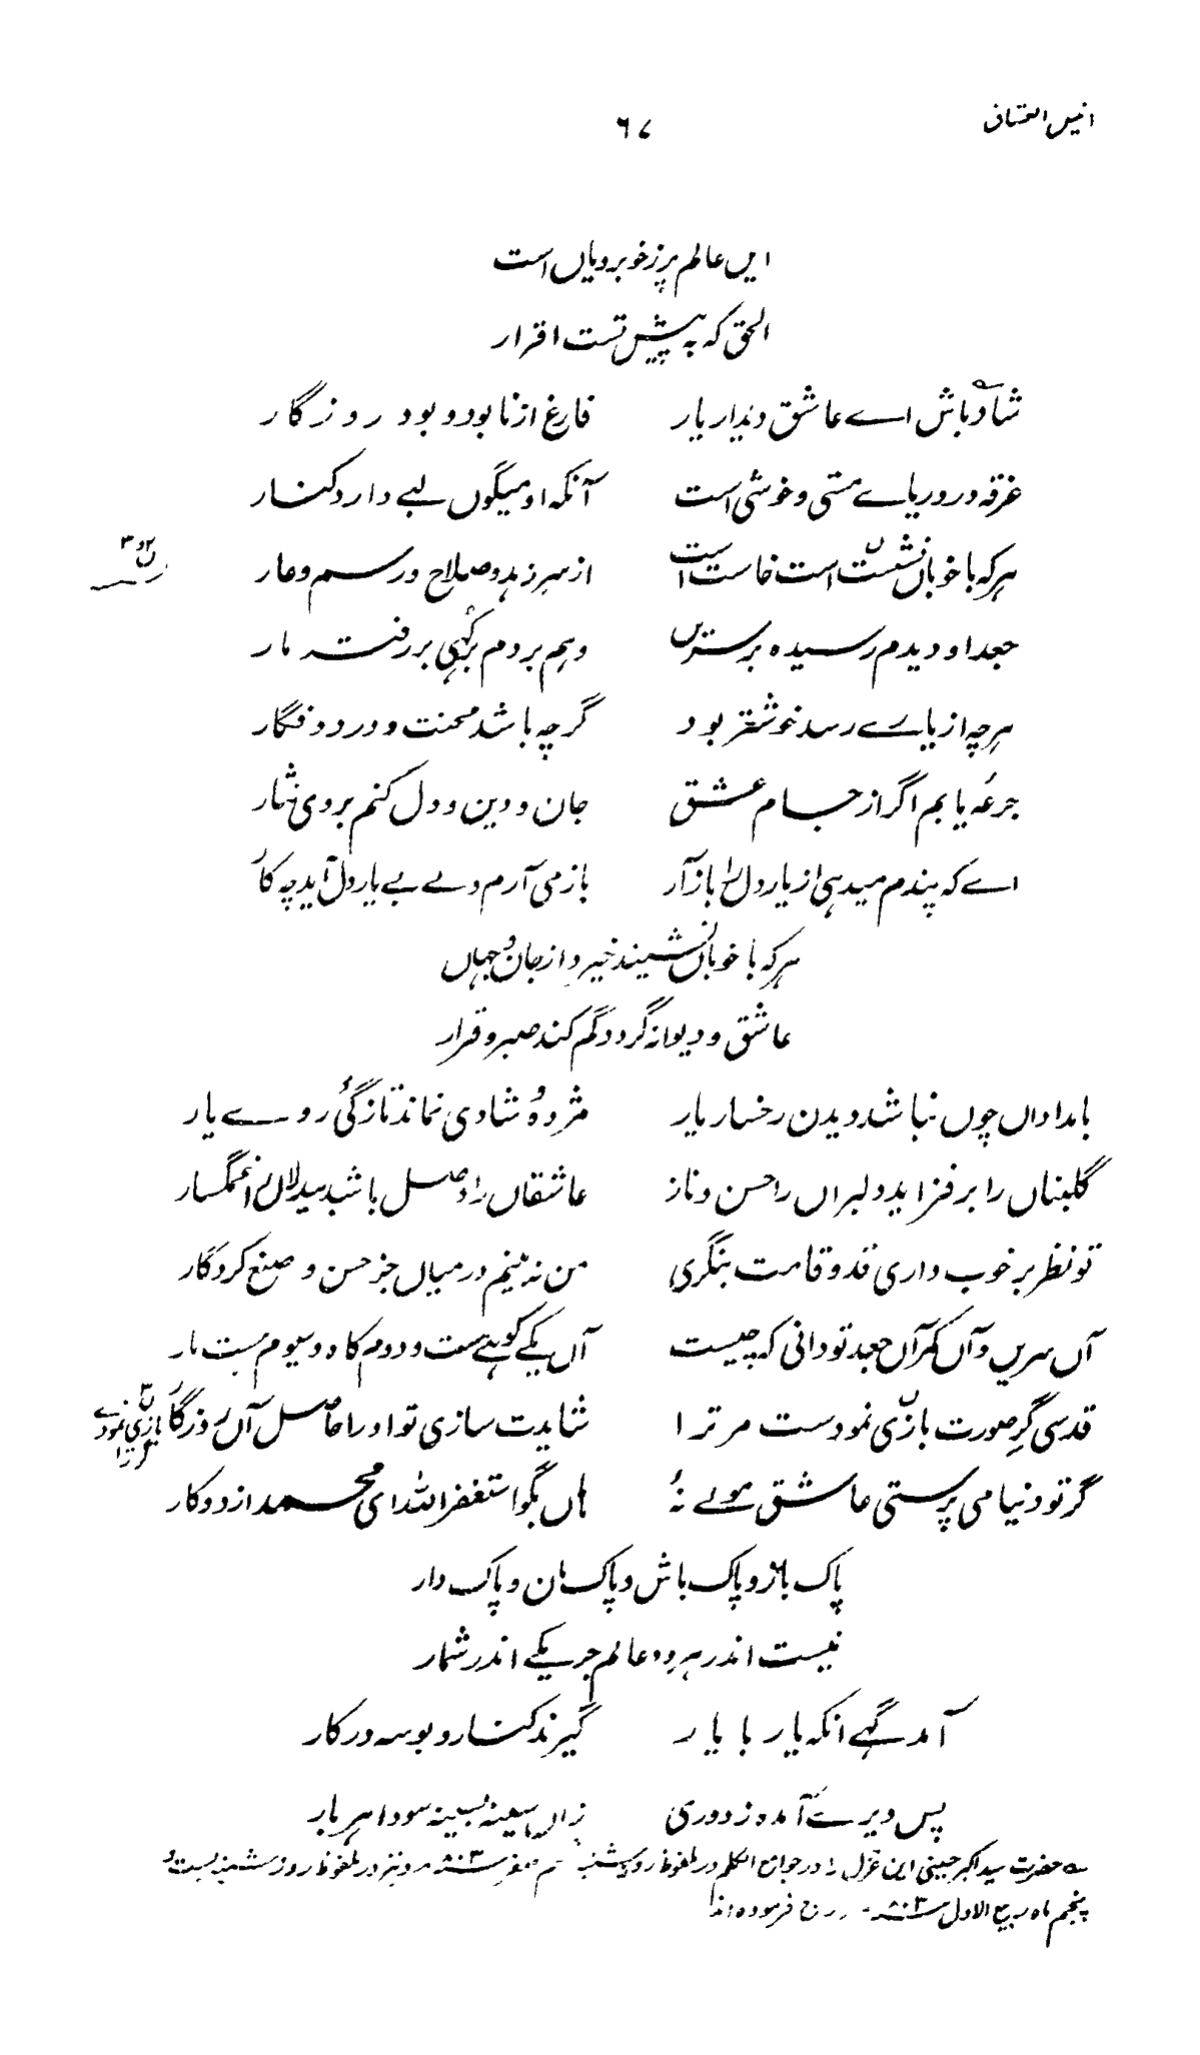 انیس العشاق
۶۷
ایں عالم پر ز خوبرویاں است
الحق کہ بہ پیش تست اقرار
شاد باش اے عاشق دیدار یار فارغ از نابود و بود روزگار
غرقہ در دریاے مستی و خوشی است آنکہ او میگوں لبے دارد کنار
ہر کہ با خوباں نشست است خاست است از سر زہد و صلاح و رسم و عار
ن ۲ و ۳
جعد او دیدم رسیدہ بر سریں وہم بردم بر کہی بر رفتہ مار
ہر چہ از یارے رسد خوشتر بود گر چہ باشد محنت و درد و فگار
جرعۂ یابم اگر از جام عشق جان و دین و دل کنم بروی نثار
اے کہ پندم میدہی از یار دل را باز آر باز می آرم ولے بے یار دل آید چہ کار
ہر کہ با خوباں نشیند خیزد از جان و جہاں
عاشق و دیوانہ گردد گم کند صبر و قرار
بامداداں چوں نباشد دیدن رخسار یار مژدۂ شادی نماند تازگیٔ روے یار
گلبناں را بر فزاید دلبراں را حسن و ناز عاشقاں را وصل باشد بیدلاں را غمگسار
تو نظر بر خوب داری قد و قامت بنگری من نہ بینم درمیاں جز حسن و صنع کردگار
آں سریں و آں کمر آں جعد تو دانی کہ چیست آں یکے کوہے ست و دوم کاہ و سیوم ہست مار
قدسی گر صورت بازی نمودست مر ترا شایدت سازی تو او را حاصل آں روزگار
ن ۳ بازی نمودے مر ترا
گر تو دنیا می پرستی عاشق مولے نۂ ہاں بگو استغفر اللہ ای محمد از دو کار
پاک باز و پاک باش و پاکسان و پاک دار
نیست اندر ہر دو عالم جز یکے اندر شمار
آمد گہے آنکہ یار با یار گیرند کنار و بوسہ در کار
پس دیرے آمدہ ز دوری زاں سینہ بسینہ سود ہر بار
سے حضرت سید اکبر حسینی این غزل را در جوامع الکلم در ملفوظ روز شنبہ صفر ۸۰۳ و نیز در ملفوظ روز شنبہ بیست و
پنجم ماہ ربیع الاول ۸۰۳ درج فرمودہ اند